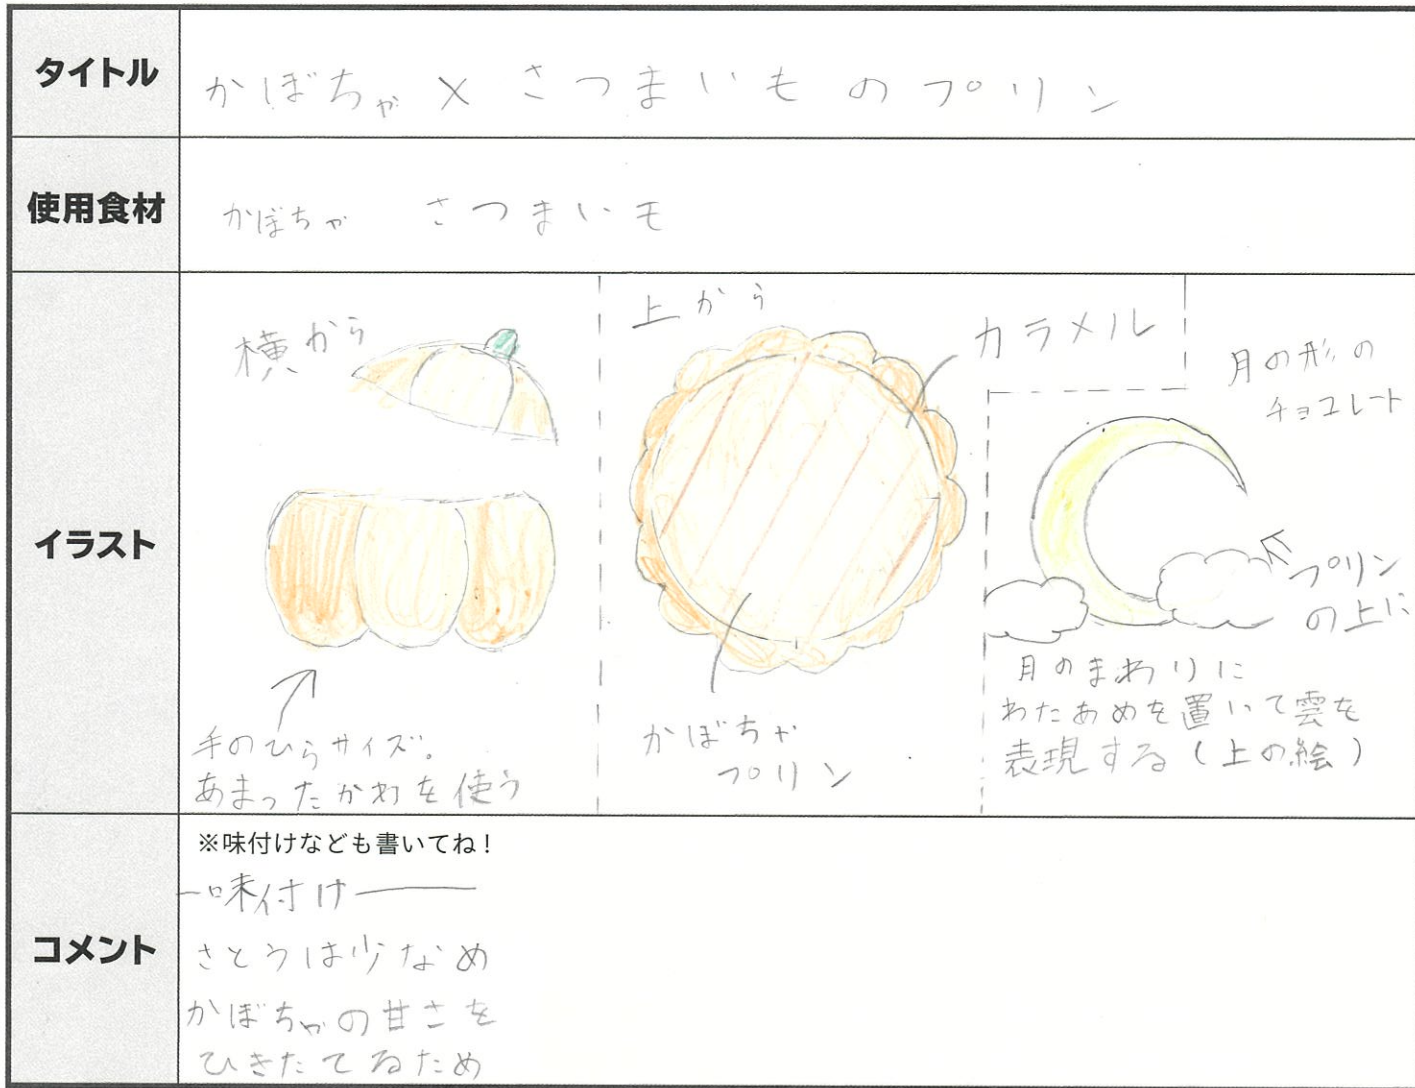 タイトル
かぼちゃ×さつまいものプリン
使用食材
かぼちゃ さつまいも
イラスト
横から
手のひらサイズ。
あまったかわを使う
上から
カラメル
かぼちゃ
プリン
月の形の
チョコレート
プリン
の上に
月のまわりに
わたあめを置いて雲を
表現する(上の絵)
コメント
※味付けなども書いてね!
味付け
さとうは少なめ
かぼちゃの甘さを
ひきたてるため